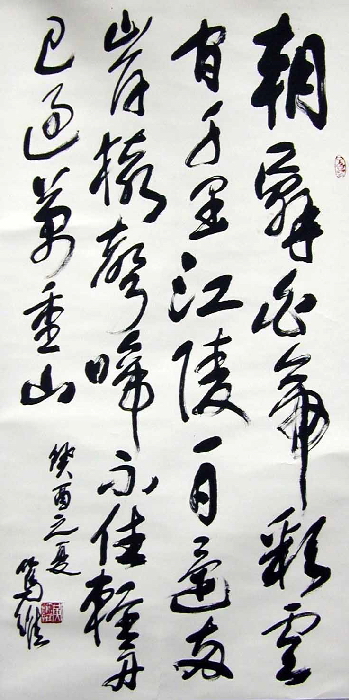 朝辭白帝彩雲
間千里江陵一日還兩
岸猿聲啼不住輕舟
已過萬重山
癸酉之夏
篤